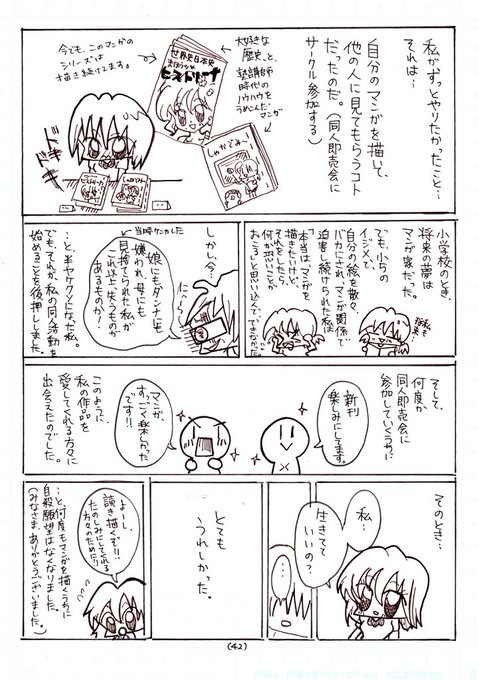 私がずっとやりたかったこと…
それは…
自分のマンガを描いて、
他の人に見てもらうコト
だったのだ。（同人即売会に
サークル参加する）
大好きな
「歴史」と、
塾講師
時代の
ノウハウを
うめこんだ
マンガ
世界史日本史
まほうつかい
今でも、このマンガの
シリーズは
描き続けてます。
ドキ
ドキ
小学校のとき、
将来の夢は
マンガ家だった。
でも、小5の
イジメで、
自分の絵を散々、
バカにされ、マンガ関係で
迫害し続けられた私は
「本当は、マンガを
描きたいけど、
それをしたら、
何か恐いことが
おこる」と思い込んで、いてできなかった。
しかし今、
当時ケンカした
娘にもケンナにも
嫌われ、母にも
見捨てられた私が
これ以上、失うものが
あるものか?
…と、半ヤケクソになった私。
でも、それが、私の同人活動を
始めることを後押ししました。
そして
何度か
同人即売会に
参加していくうちに
新刊
楽しみにしてます。
マンガ、
すっごく楽しかった
です!!
このように
私の作品を
愛してくれる方々に
出会えたのでした。
そのとき…
私…
生きてて
いいの?
…
とても
うれしかった。
よーし、
続き描くぞ!!
たのしみにしてくれる
方々のためだ!!
…と何度もマンガを描くうちに
自殺願望はなくなりました。
（みなさま、ありがとうございました。）
(42)